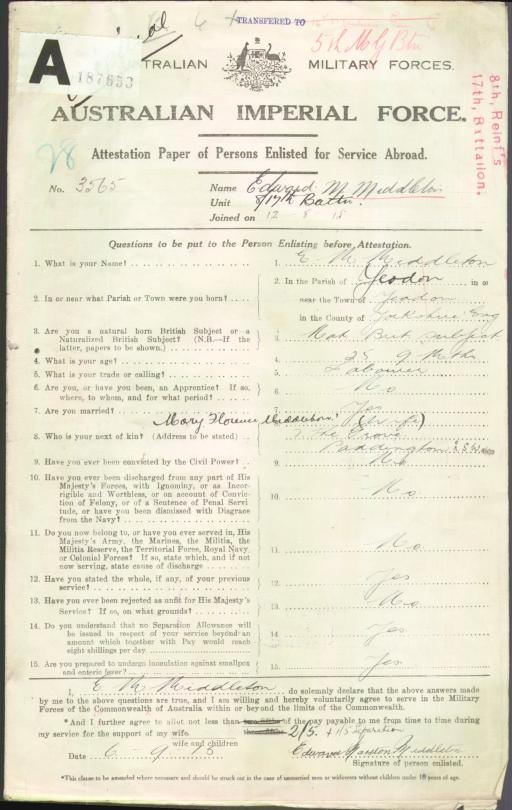 TRANSFERED TO
5th M G Btn
A
187653
TRALIAN MILITARY FORCES.
AUSTRALIAN IMPERIAL FORCE.
8th, Reinf's
17th, Battalion.
28
Attestation Paper of Persons Enlisted for Service Abroad.
No. 3565
Name Edward M Middleton
Unit 8/17th Battn.
Joined on 12 - 8 - 15
Questions to be put to the Person Enlisting before Attestation.
1. What is your Name?
1. E. M. Middleton
2. In or near what Parish or Town were you born?
2. In the Parish of Yeadon in or
near the Town of Yeadon
in the County of Yorkshire Eng
3. Are you a natural born British Subject or a
Naturalized British Subject? (N.B.—If the
latter, papers to be shown.)
3. Nat Brit subject
4. What is your age?
4. 35 9 Mths
5. What is your trade or calling?
5. Labourer
6. Are you, or have you been, an Apprentice? If so,
where, to whom, and for what period?
6. No
7. Are you married?
7. Yes
8. Who is your next of kin? (Address to be stated)
Mary Florence Middleton (Wife)
The Grove
Paddington N S W
9. Have you ever been convicted by the Civil Power?
9. No
10. Have you ever been discharged from any part of His
Majesty's Forces, with Ignominy, or as Incor-
rigible and Worthless, or on account of Convic-
tion of Felony, or of a Sentence of Penal Servi-
tude, or have you been dismissed with Disgrace
from the Navy?
10. No
11. Do you now belong to, or have you ever served in, His
Majesty's Army, the Marines, the Militia, the
Militia Reserve, the Territorial Force, Royal Navy
or Colonial Forces? If so, state which, and if not
now serving, state cause of discharge
11. No
12. Have you stated the whole, if any, of your previous
service?
12. Yes
13. Have you ever been rejected as unfit for His Majesty's
Service? If so, on what grounds?
13. No
14. Do you understand that no Separation Allowance will
be issued in respect of your service beyond an
amount which together with Pay would reach
eight shillings per day.
14. Yes
15. Are you prepared to undergo inoculation against smallpox
and enteric fever?
15. Yes
I, E M Middleton do solemnly declare that the above answers made
by me to the above questions are true, and I am willing and hereby voluntarily agree to serve in the Military
Forces of the Commonwealth of Australia within or beyond the limits of the Commonwealth.
*And I further agree to allot not less than two-fifths of the pay payable to me from time to time during
my service for the support of my wife. three-fifths 2/5 + 1/5 Separation
wife and children
Date 6. 9. 15
Edward Middleton
Signature of person enlisted.
*This clause to be amended where necessary and should be struck out in the case of unmarried men or widowers without children under 18 years of age.